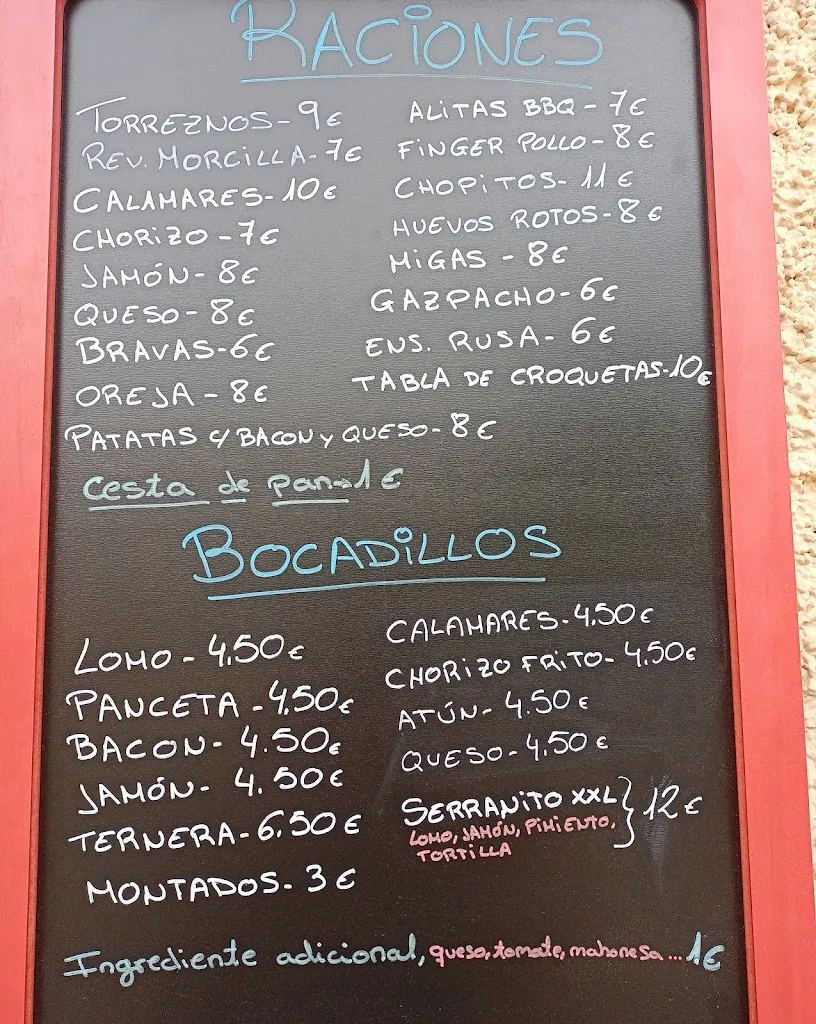 RACIONES
TORREZNOS - 9€
REV. MORCILLA - 7€
CALAMARES - 10€
CHORIZO - 7€
JAMÓN - 8€
QUESO - 8€
BRAVAS - 6€
OREJA - 8€
PATATAS C/ BACON y QUESO - 8€
ALITAS BBQ - 7€
FINGER POLLO - 8€
CHOPITOS - 11€
HUEVOS ROTOS - 8€
MIGAS - 8€
GAZPACHO - 6€
ENS. RUSA - 6€
TABLA DE CROQUETAS - 10€
Cesta de pan → 1€
BOCADILLOS
LOMO - 4,50€
PANCETA - 4,50€
BACON - 4.50€
JAMÓN - 4.50€
TERNERA - 6.50€
MONTADOS - 3€
CALAMARES - 4,50€
CHORIZO FRITO - 4,50€
ATÚN - 4.50€
QUESO - 4,50€
SERRANITO XXL } 12€
LOMO, JAMÓN, PIMIENTO,
TORTILLA
Ingrediente adicional, queso, tomate, mahonesa... 1€